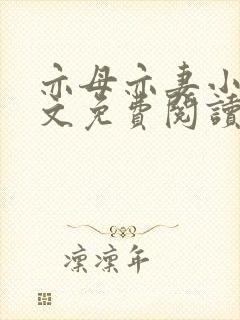 亦母亦妻小
文免費閱讀
凜凜年